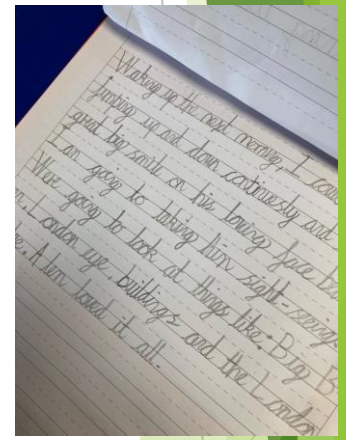 Waking up the next morning, I
jumping up and down continuesly and
great big smile on his loving face
I am going to taking him sight-seeings
We're going to look at things like: Big B
London eye buildings and the London
Alem loved it all.